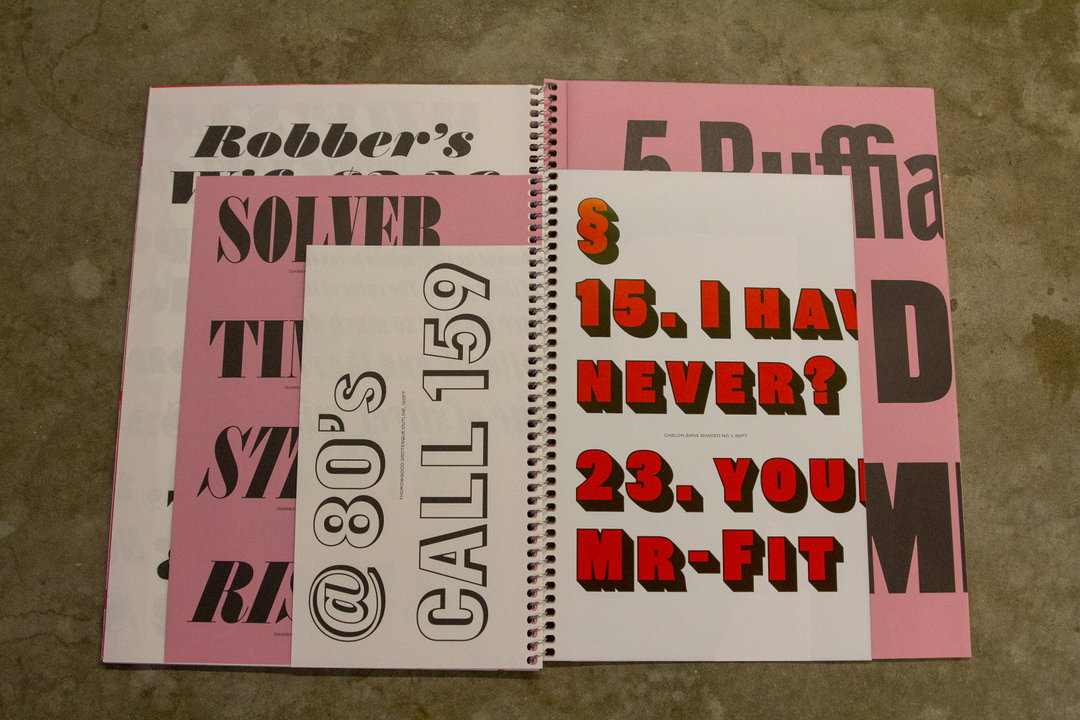 Robber's
SOLVER
TIM
ST
RIS
@ 80's
THOROWGOOD GROTESQUE OUTLINE, 120PT
CALL 159
§
15. I HAV
NEVER?
CASLON SANS SHADED NO.1, 96PT
23. YOU
MR-FIT
5 Ruffia
D
M